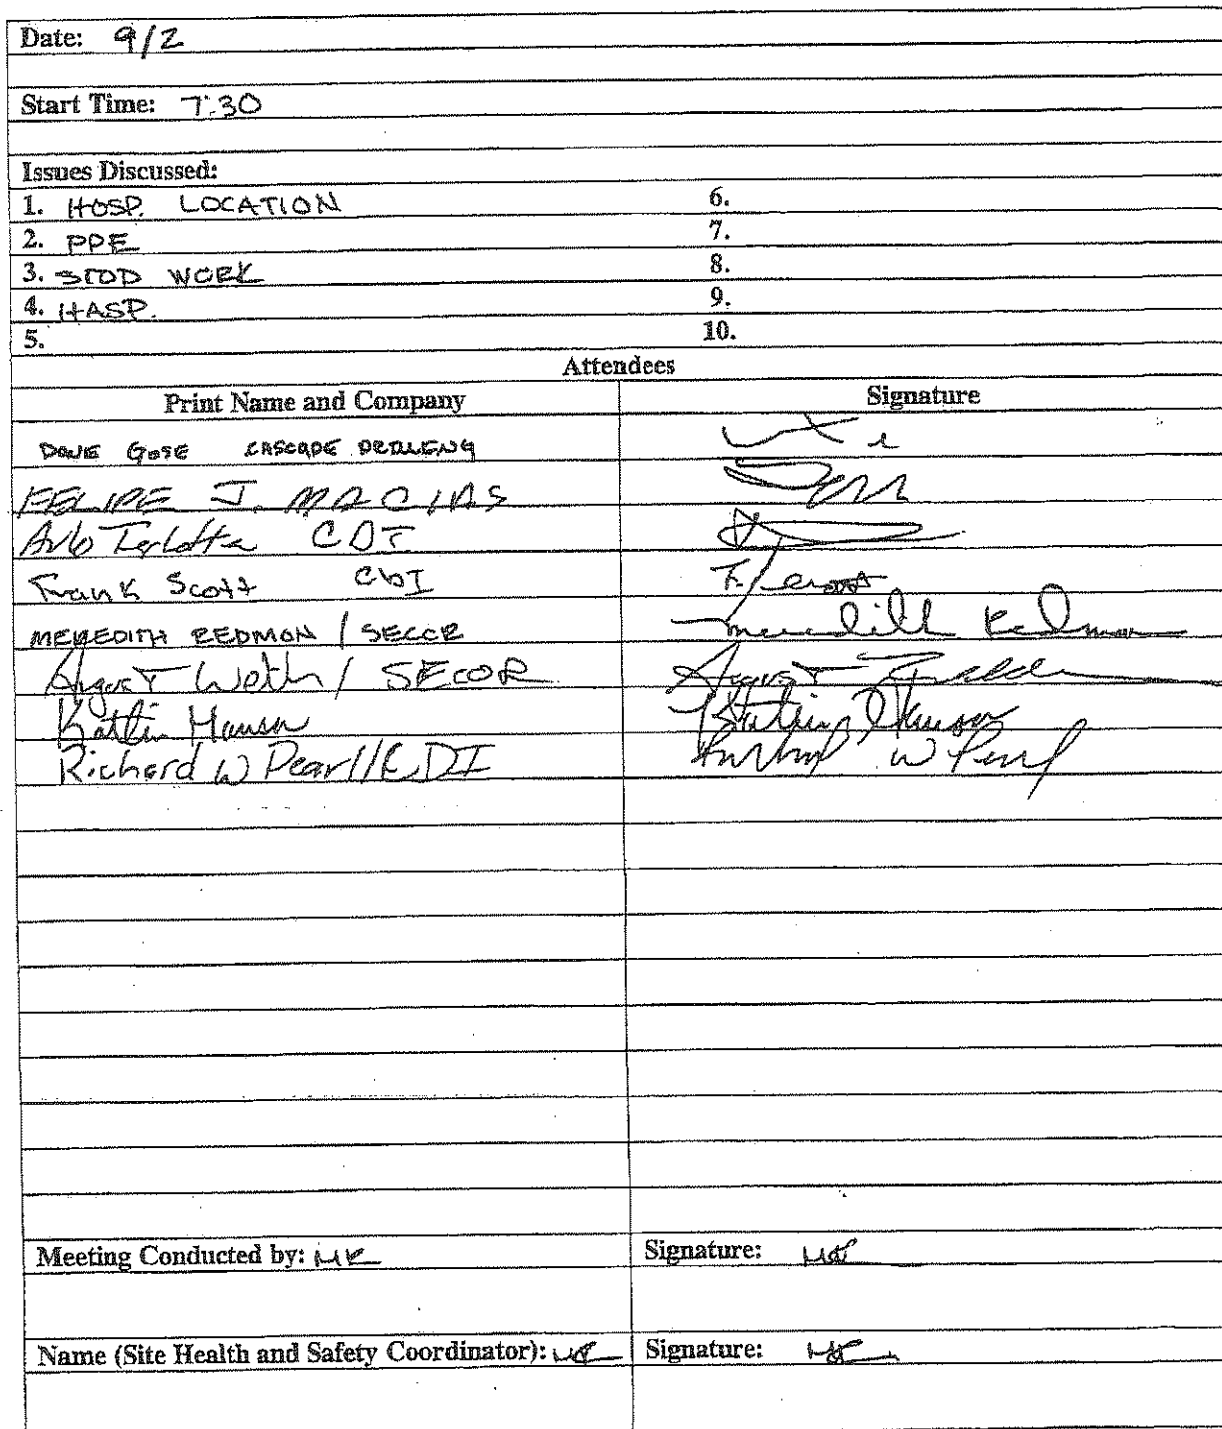 Date: 9/2
Start Time: 7:30
Issues Discussed:
1. HOSP. LOCATION 6.
2. PPE 7.
3. STOP WORK 8.
4. HASP. 9.
5. 10.
Attendees
Print Name and Company Signature
DAVE GOSE CASCADE DRILLING
FELIPE J. MACIAS
CDI
Frank Scott CDI
MEREDITH REDMON / SECOR Meredith Redmon
August / SECOR August
Kaitlin Hanson Kaitlin Hanson
Richard W Pearl / CDI Richard W Pearl
Meeting Conducted by: MR Signature: MR
Name (Site Health and Safety Coordinator): MR Signature: MR